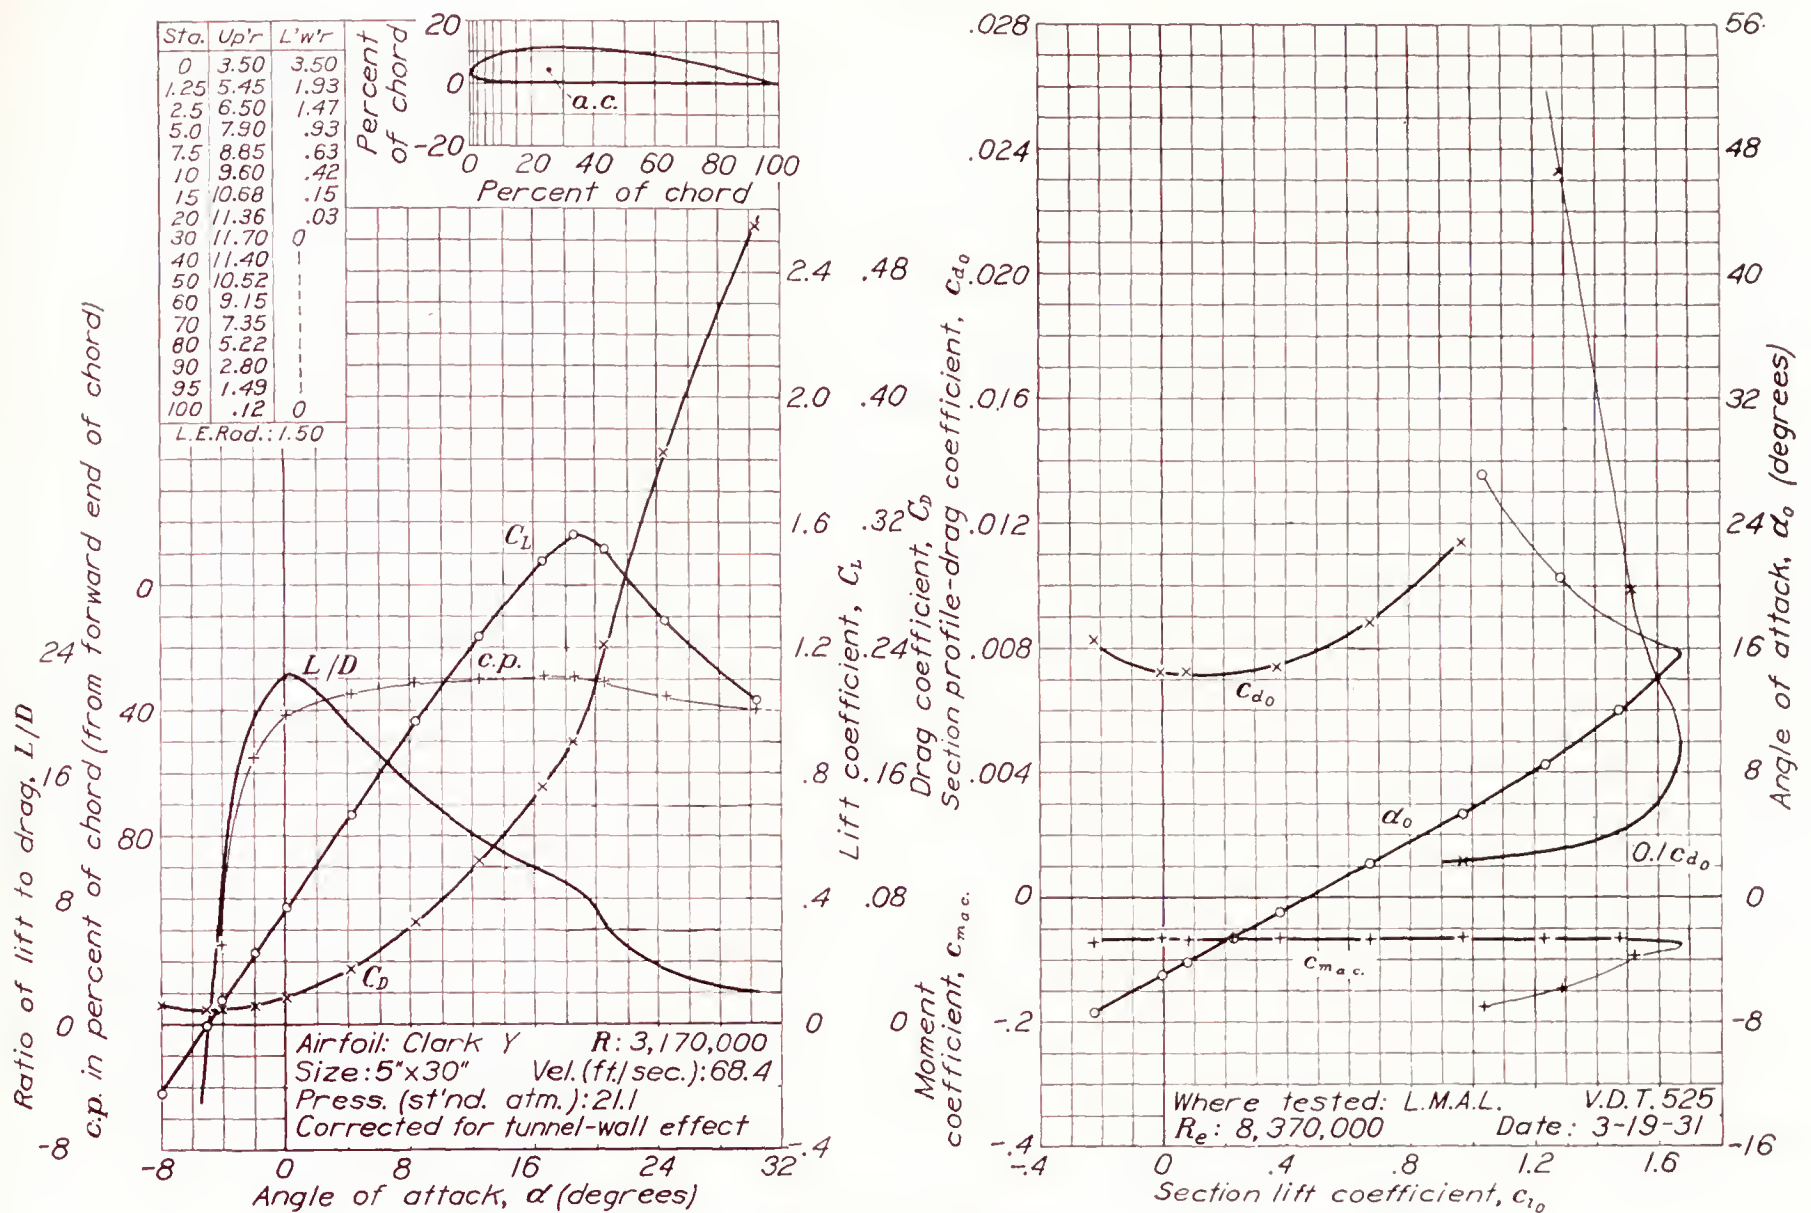 Sta. Up'r L'w'r
0 3.50 3.50
1.25 5.45 1.93
2.5 6.50 1.47
5.0 7.90 .93
7.5 8.85 .63
10 9.60 .42
15 10.68 .15
20 11.36 .03
30 11.70 0
40 11.40
50 10.52
60 9.15
70 7.35
80 5.22
90 2.80
95 1.49
100 .12 0
L.E.Rad.: 1.50
Percent of chord
20
0
-20
a.c.
0 20 40 60 80 100
Percent of chord
Ratio of lift to drag, L/D
24
16
8
0
-8
c.p. in percent of chord (from forward end of chord)
0
40
80
L/D
c.p.
CL
CD
2.4 .48
2.0 .40
1.6 .32
1.2 .24
.8 .16
.4 .08
0 0
-.4
Lift coefficient, CL
Drag coefficient, CD
Airfoil: Clark Y R: 3,170,000
Size: 5"x30" Vel. (ft./sec.): 68.4
Press. (st'nd. atm.): 21.1
Corrected for tunnel-wall effect
-8 0 8 16 24 32
Angle of attack, α (degrees)
Section profile-drag coefficient, cd0
.028
.024
.020
.016
.012
.008
.004
0
-.2
-.4
Moment coefficient, cma.c.
cd0
α0
0.1cd0
cma.c.
56
48
40
32
24
16
8
0
-8
-16
Angle of attack, α0 (degrees)
Where tested: L.M.A.L. V.D.T. 525
Re: 8,370,000 Date: 3-19-31
-.4 0 .4 .8 1.2 1.6
Section lift coefficient, cl0